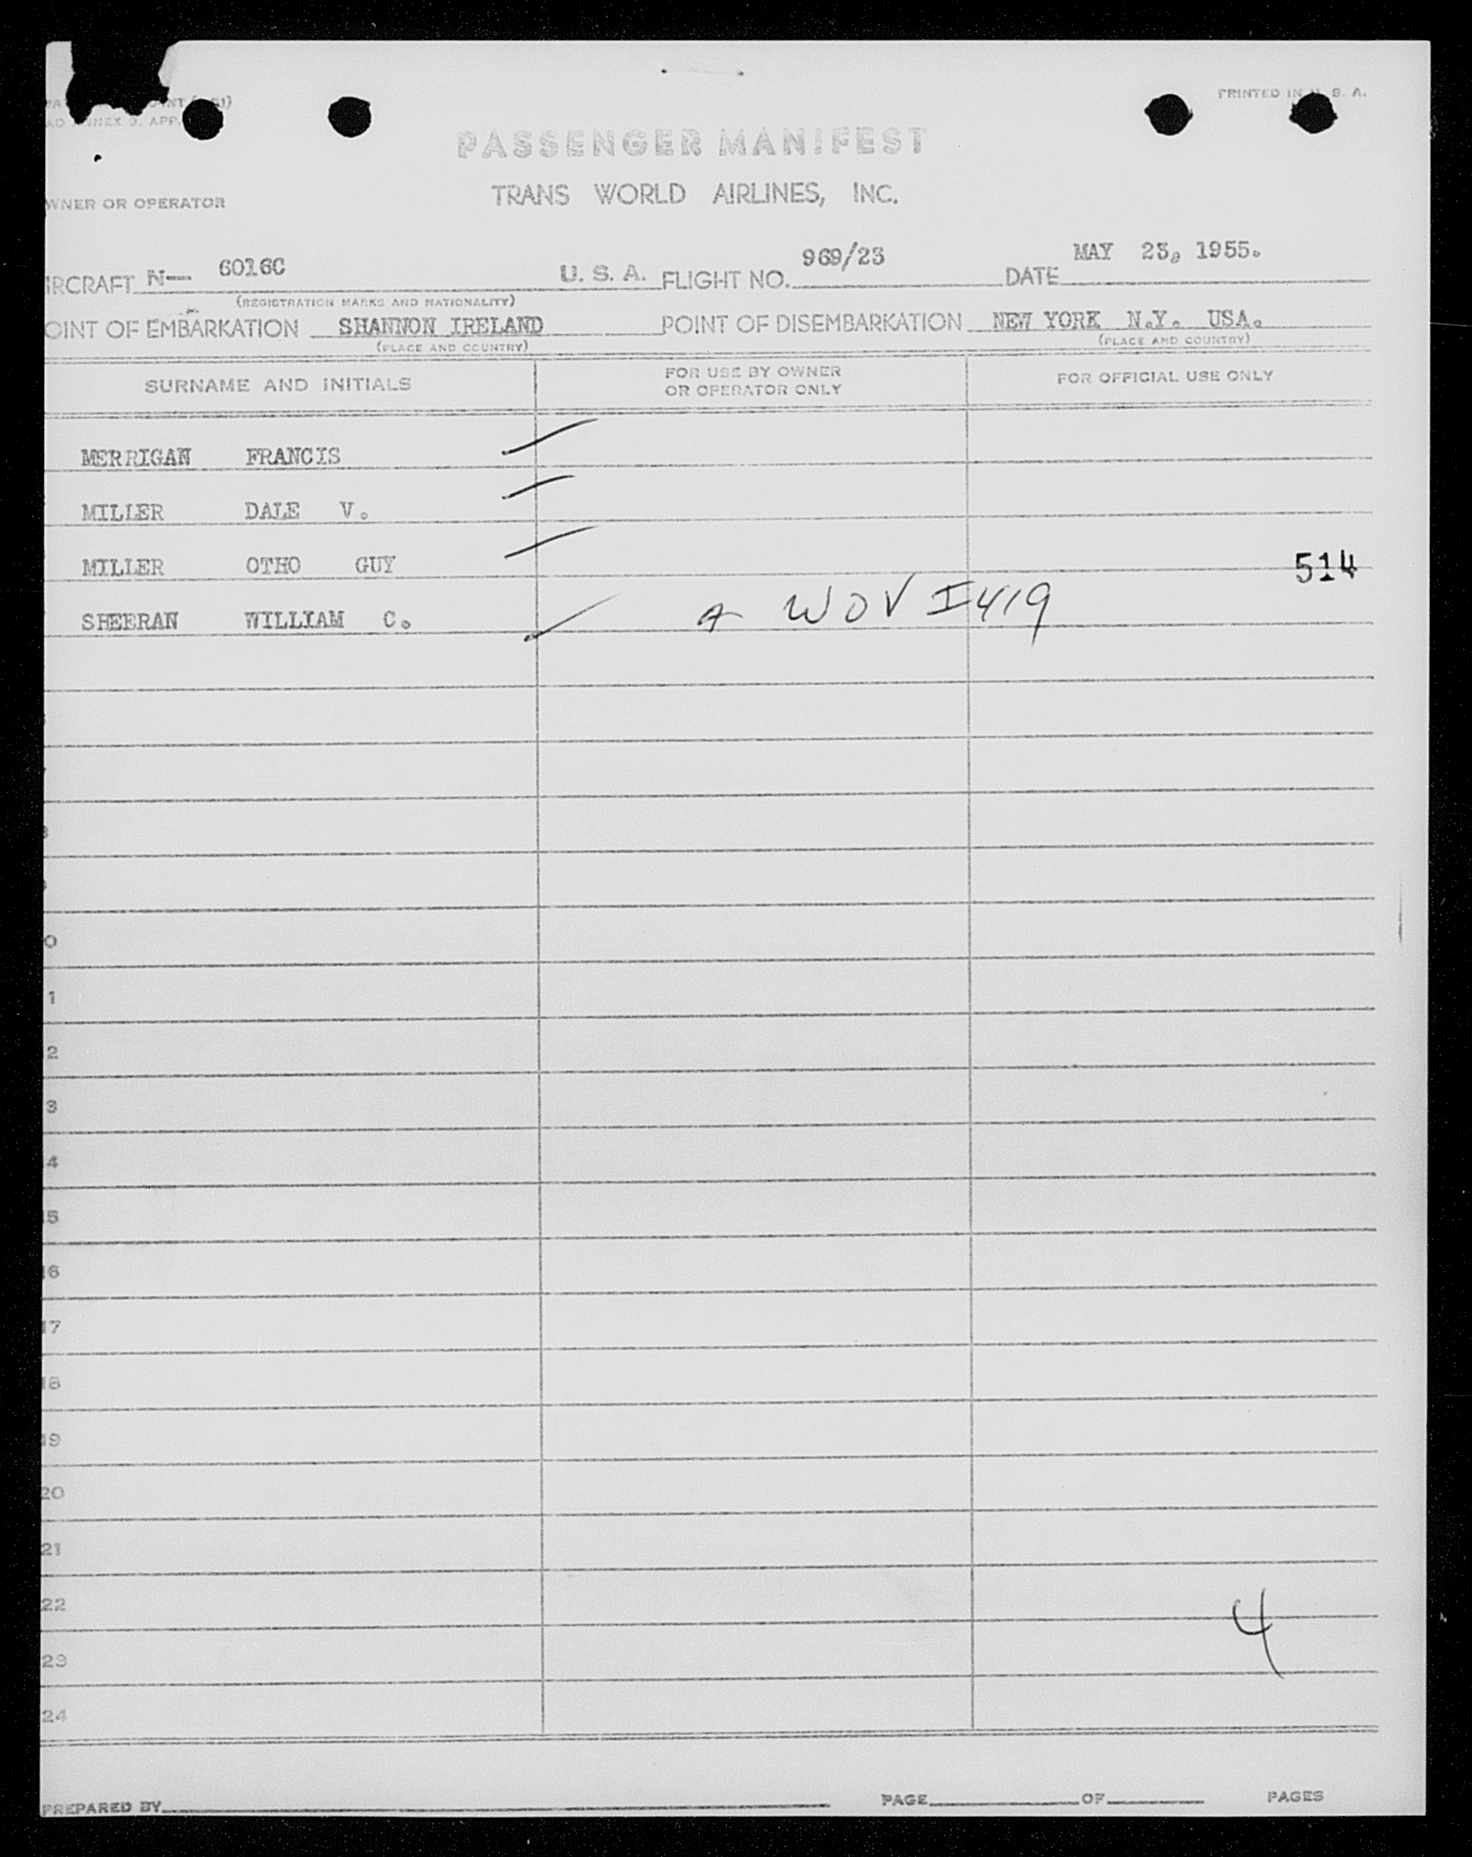 PRINTED IN U. S. A.
PASSENGER MANIFEST
TRANS WORLD AIRLINES, INC.
WNER OR OPERATOR
IRCRAFT N— 6016C U. S. A. FLIGHT NO. 969/23 DATE MAY 23, 1955.
(REGISTRATION MARKS AND NATIONALITY)
OINT OF EMBARKATION SHANNON IRELAND POINT OF DISEMBARKATION NEW YORK N.Y. USA.
(PLACE AND COUNTRY) (PLACE AND COUNTRY)
SURNAME AND INITIALS FOR USE BY OWNER OR OPERATOR ONLY FOR OFFICIAL USE ONLY
MERRIGAN FRANCIS
MILLER DALE V.
MILLER OTHO GUY 514
SHEERAN WILLIAM C. A WOV I419
0
1
2
3
4
15
16
17
18
19
20
21
22 4
23
24
PREPARED BY PAGE OF PAGES